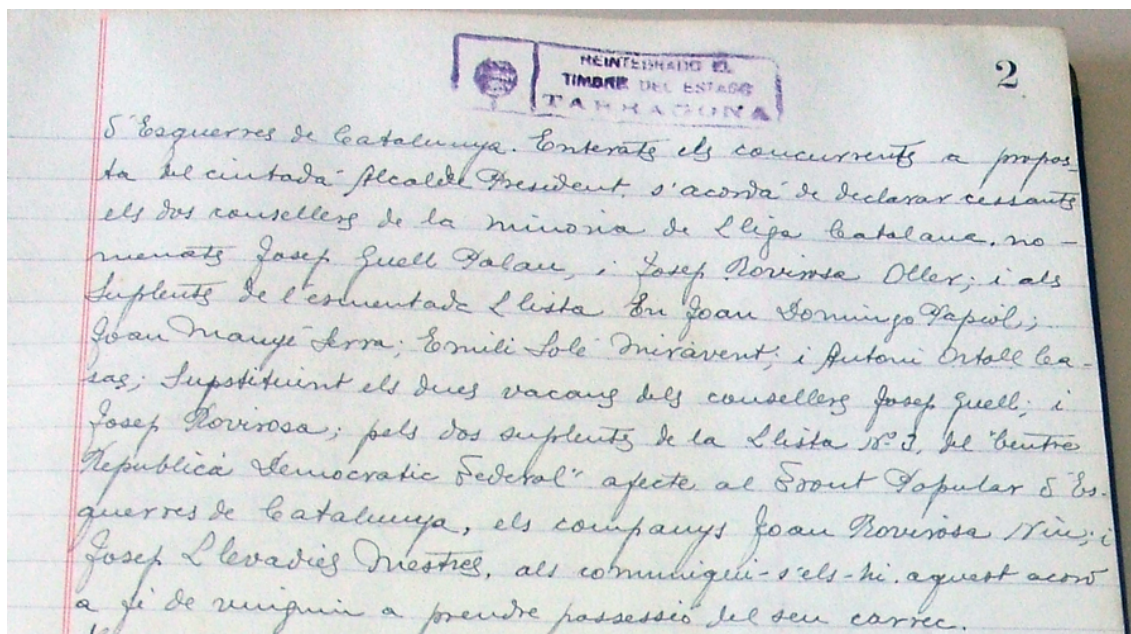 REINTEGRADO EL
TIMBRE DEL ESTADO
TARRAGONA
2
d'Esquerres de Catalunya. Enterats els concurrents a propos-
ta del ciutadà Alcalde President, s'acordà de declarar cessants
els dos consellers de la minoria de Lliga Catalana, no-
menats Josep Guell Palau, i Josep Rovirosa Oller; i als
Suplents de l'esmentada Llista En Joan Domingo Papiol;
Joan Mañyé Serra; Emili Solé Miravent; i Antoni Ortoll Ca-
sas; Supstituint els dues vacans dels consellers Josep Guell; i
Josep Rovirosa; pels dos suplents de la Llista Nº 3, del "Centre
Republicà Democratic Federal" afecte al Front Popular d'Es-
querres de Catalunya, els companys Joan Rovirosa Nin; i
Josep Llevadies Mestres, als comuniqui-s'els-hi aquest acord
a fi de vinguin a prendre possessió del seu carrec.